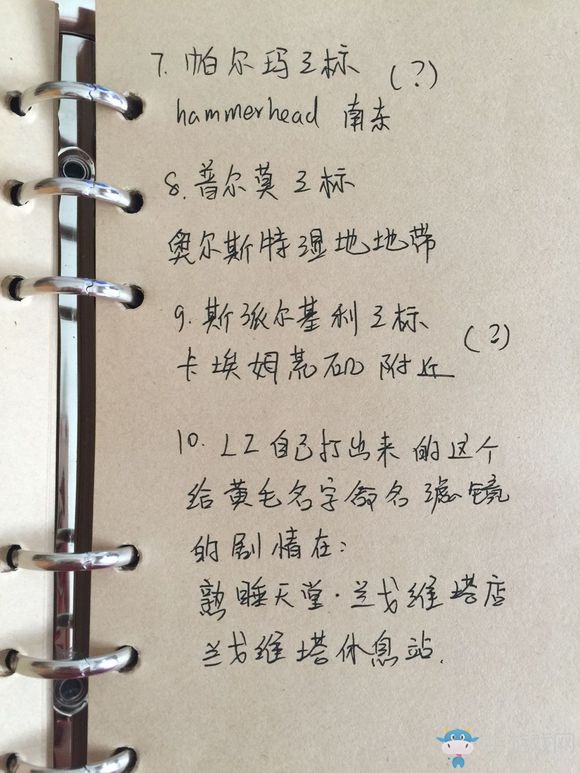 7. 帕尔玛立标 (?)
hammerhead 南东
8. 普尔莫立标
奥尔斯特湿地地带
9. 斯派尔基利立标 (?)
卡埃姆荒矶附近
10. LZ自己打出来的这个
给黄毛名字命名滤镜
的剧情在:
熟睡天堂·兰戈维塔店
兰戈维塔休息站.
游戏网